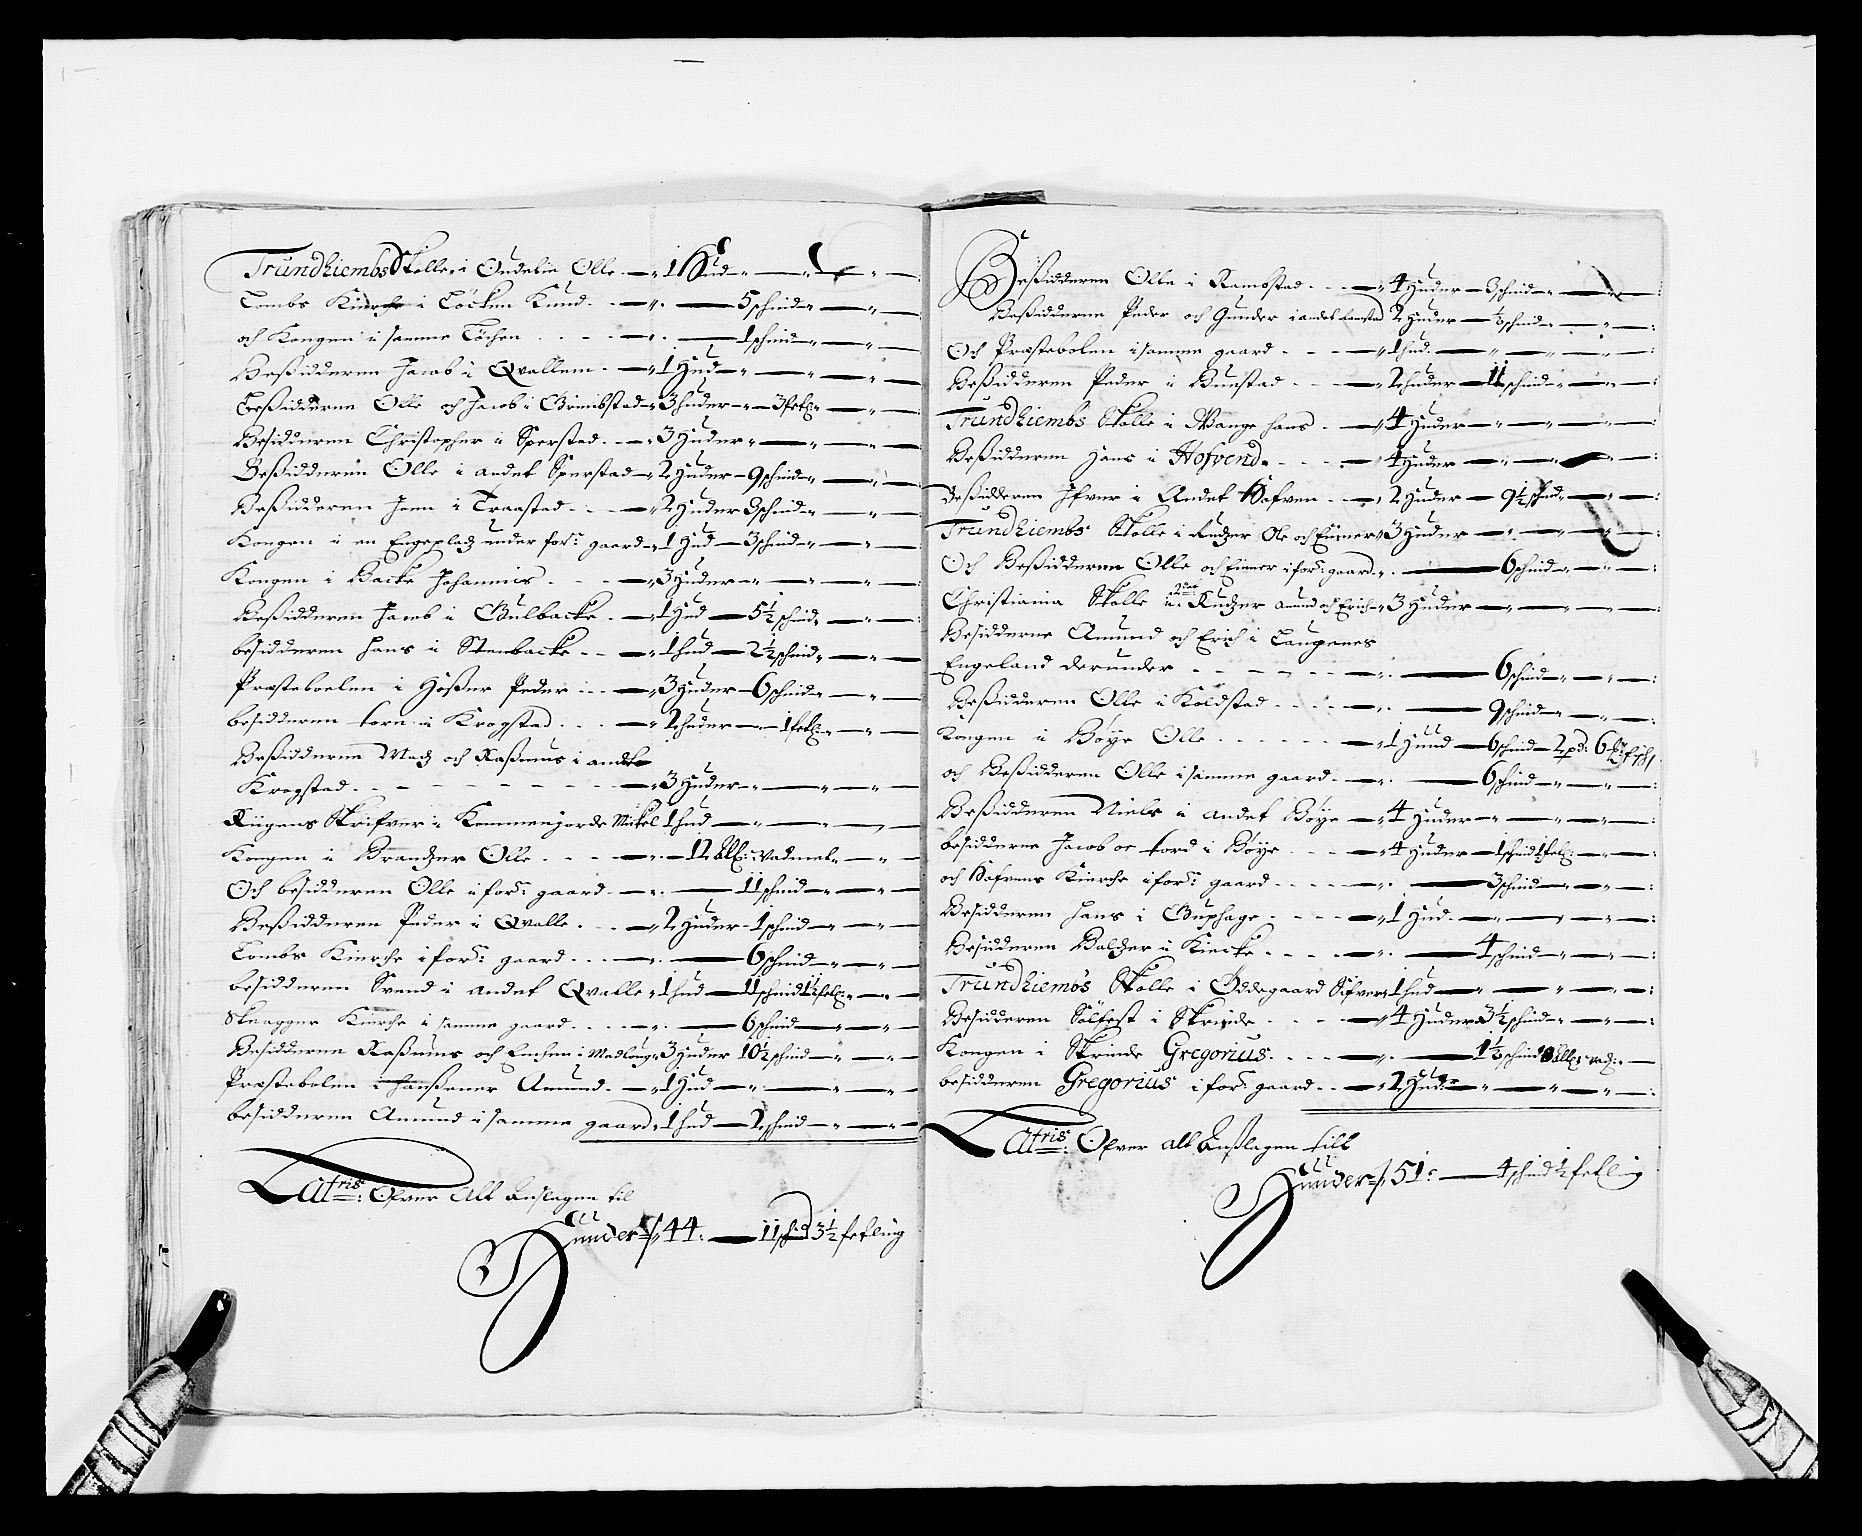 Trundhiembs Skolle i Oudalie Olle — 1 Hud
Tombs Kierche i Löcken Knud — 5 schind
och Kongen i samme Löchen — 1 schind
Beßidderen Jacob i Qvallem — 1 Hud
Beßidderne Olle och Jacob i Grimbstad 3 huder — 3 fetl:
Besidderen Christopher i Sperstad — 3 Huder
Beßidderen Olle i andet Sperstad — 2 Huder — 9 schind
Beßidderen Jenn i Traastad — 2 Huder 3 schind
Kongen i en Engeplatz under forn: gaard — 1 Hud — 3 schind
Kongen i Backe Johannis — 3 Huder
Beßidderen Jacob i Gulbacke — 1 Hud — 5½ schind
besidderen Hans i Stenbacke — 1 hud — 2½ schind
Præsteboelen i Hößer Peder — 3 Huder — 6 schind
besidderen tore i Krogstad — 2 huder — 1 fetl:
Beßidderne Madz och Raßmus i andet
Krogstad — 3 Huder
Riigens Skrifver i Kommenjorde Mickel 1 hud
Kongen i Brandzer Olle — 12 All: Vadmel
Och besidderen Olle i forn: gaard — 11 schind
Beßidderen Peder i Qvalle — 2 Huder — 1 schind
Tombs Kierche i forn: gaard — 6 schind
besidderen Svend i andet Qvalle 1 hud — 11 schind 1½ fetl:
Skeagger Kierche i samme gaard — 6 schind
Besidderne Raßmus och Embret i Medlang 3 Huder 10½ schind
Præstebolen i Hanßener Amund — 1 Hud
besidderen Amund i samme gaard 1 hud — 2 schind
Latris: Ofver Alt Anslagen til
Huder // 44: — 11 schind 3½ fetling
Beßidderen Olle i Rambstad — 4 Huder — 3 schind
Beßidderne Peder och Gunder i andet Ramstad 2 Huder — ½ schind
Och Præstebolen i samme gaard — 1 hud
Beßidderen Peder i Bunstad — 2 huder — 11 schind
Trundhiembs Skolle i Wange Hans — 4 Huder
Beßidderen Hans i Hofvend — 4 Huder
Beßidderen Ifver i Andet Hofven — 2 Huder — 9½ schind
Trundhiembs Skolle i Rudzer Ole och Einer 3 Huder
Och Beßidderen Olle och Einer i forn: gaard — 6 schind
Christiania Skolle i andet Rudzer Amund och Erich 3 Huder
Besidderne Amund och Erich i Taugenes
Engeland derunder — 6 schind
Beßidderen Olle i Koldstad — 9 schind
Kongen i Böye Olle — 1 Huud — 6 schind 2 pd: 6
och Beßidderen Olle i samme gaard — 6 schind
Beßidderen Niels i andet Böye — 4 Huder
besidderne Jacob oc tord i Böye — 4 Huder 1 schind 1 fetl:
och Hofvens Kierche i forn: gaard — 3 schind
Besidderen Hans i Guphage — 1 Hud
Besidderen Baltzer i Kircke — 4 schind
Trundhiembs Skolle i Oddegaard Sifver 1 hud
Besidderen Sölfest i Skrinde — 4 Huder 3½ schind
Kongen i Skrinde Gregorius — 1½ schind 8 All: vad:
besidderen Gregorius i forn: gaard — 2 Huder
Latris: Ofver alt Anslagen till
Huder // 51: — 4 schind ½ fetling